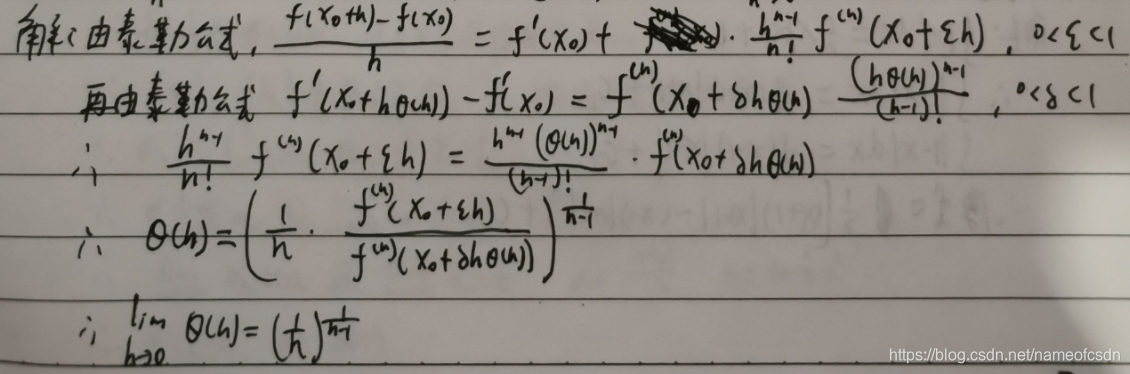 解:由泰勒公式, \frac{f(x_0+h)-f(x_0)}{h} = f'(x_0) + · \frac{h^{n-1}}{n!} f^{(n)}(x_0+εh), 0<ε<1
再由泰勒公式 f'(x_0+hθ(h)) - f'(x_0) = f^{(n)}(x_0+δhθ(h)) \frac{(hθ(h))^{n-1}}{(n-1)!}, 0<δ<1
∴ \frac{h^{n-1}}{n!} f^{(n)}(x_0+εh) = \frac{h^{n-1}(θ(h))^{n-1}}{(n-1)!} · f^{(n)}(x_0+δhθ(h))
∴ θ(h) = \left( \frac{1}{n} · \frac{f^{(n)}(x_0+εh)}{f^{(n)}(x_0+δhθ(h))} \right)^{\frac{1}{n-1}}
∴ \lim_{h→0} θ(h) = \left(\frac{1}{n}\right)^{\frac{1}{n-1}}
https://blog.csdn.net/nameofcsdn